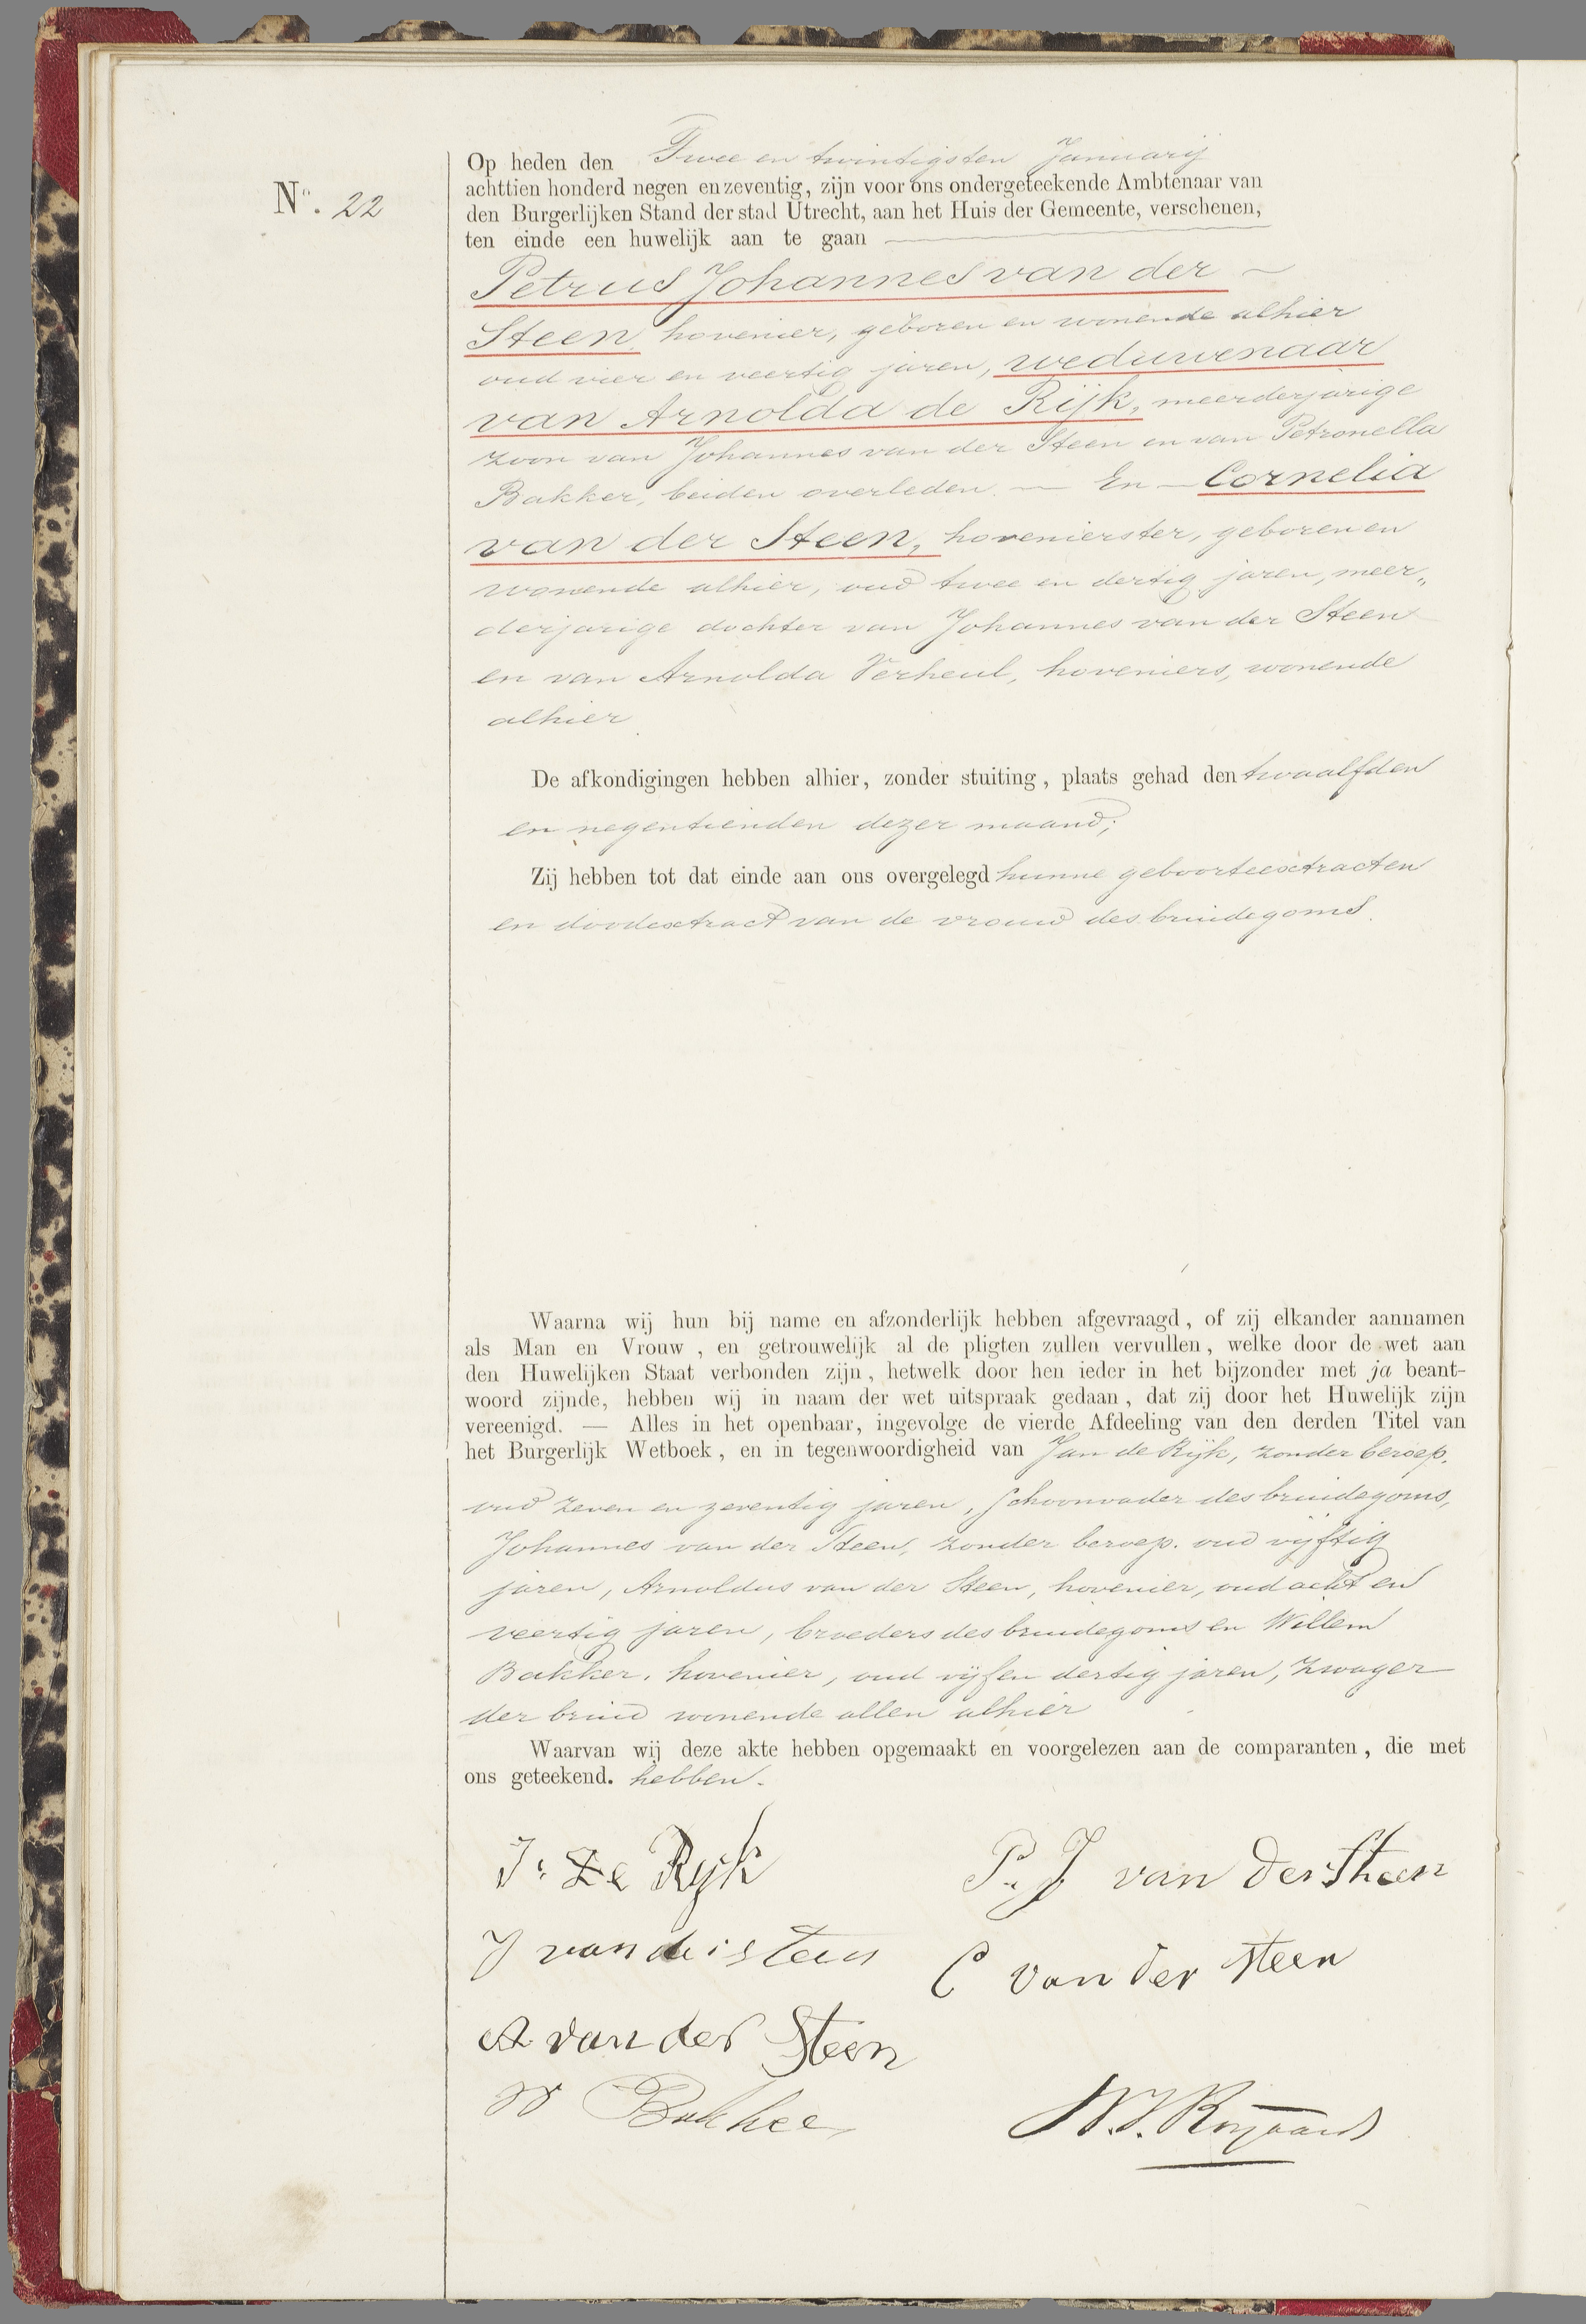 Nº. 22
Op heden den Twee en twintigsten Januarij
achttien honderd negen en zeventig, zijn voor ons ondergeteekende Ambtenaar van
den Burgerlijken Stand der stad Utrecht, aan het Huis der Gemeente, verschenen,
ten einde een huwelijk aan te gaan
Petrus Johannes van der
Steen, hovenier, geboren en wonende alhier
oud vier en veertig jaren, weduwenaar
van Arnolda de Rijk, meerderjarige
zoon van Johannes van der Steen en van Petronella
Bakker, beiden overleden. — En — Cornelia
van der Steen, hovenierster, geboren en
wonende alhier, oud twee en dertig jaren, meer„
derjarige dochter van Johannes van der Steen
en van Arnolda Verheul, hoveniers, wonende
alhier
De afkondigingen hebben alhier, zonder stuiting, plaats gehad den twaalfden
en negentienden dezer maand;
Zij hebben tot dat einde aan ons overgelegd hunne geboorteextracten
en doodextract van de vrouw des bruidegoms.
Waarna wij hun bij name en afzonderlijk hebben afgevraagd, of zij elkander aannamen
als Man en Vrouw, en getrouwelijk al de pligten zullen vervullen, welke door de wet aan
den Huwelijken Staat verbonden zijn, hetwelk door hen ieder in het bijzonder met ja beant-
woord zijnde, hebben wij in naam der wet uitspraak gedaan, dat zij door het Huwelijk zijn
vereenigd. — Alles in het openbaar, ingevolge de vierde Afdeeling van den derden Titel van
het Burgerlijk Wetboek, en in tegenwoordigheid van Jan de Rijk, zonder beroep,
oud zeven en zeventig jaren, schoonvader des bruidegoms,
Johannes van der Steen, zonder beroep. oud vijftig
jaren, Arnoldus van der Steen, hovenier, oud acht en
veertig jaren, broeders des bruidegoms en Willem
Bakker, hovenier, oud vijf en dertig jaren, zwager
der bruid wonende allen alhier
Waarvan wij deze akte hebben opgemaakt en voorgelezen aan de comparanten, die met
ons geteekend. hebben.
J. De Ryk
P. J van der Steen
J van der steen
C van der steen
A van der Steen
W Bakker